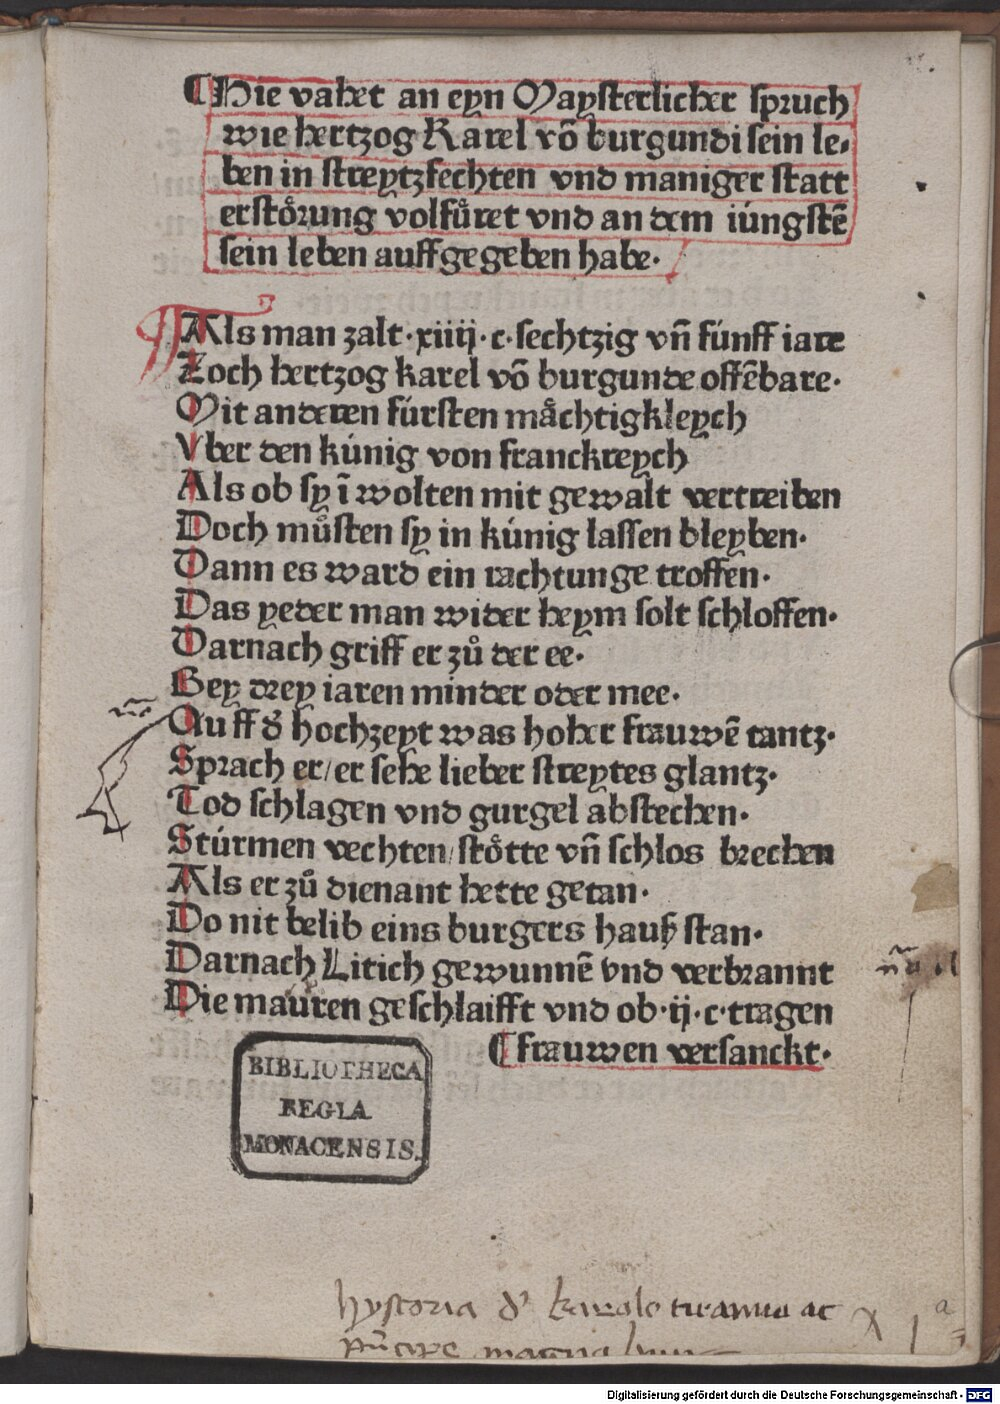 ¶Hie vahet an eyn Maysterlicher spruch
wie hertzog Karel vō burgundi sein le-
ben in streytzfechten vnd maniger statt
erstoͤrung volfuͤret vnd an dem iúngstē
sein leben auffgegeben habe.
Als man zalt·xiiij·c·sechtzig vn̄ fúnff iare
Zoch hertzog karel vō burgunde offēbare·
Mit anderen fúrsten maͤchtigkleych
Vber den kúnig von franckreych
Als ob sy ī wolten mit gewalt vertreiben
Doch muͦsten sy in kúnig lassen bleyben·
Dann es ward ein rachtunge troffen·
Das yeder man wider heym solt schloffen·
Darnach griff er zuͦ der ee·
Bey drey iaren minder oder mee·
Auff d̕ hochzeyt was hoher frauwē tantz·
Sprach er/er sehe lieber streytes glantz·
Tod schlagen vnd gurgel abstechen·
Stúrmen vechten/stoͤtte vn̄ schlos brechen
Als er zuͦ dienant hette getan·
Do nit belib eins burgers hauß stan·
Darnach Litich gewunnē vnd verbrannt
Die mauren geschlaifft vnd ob·ij·c·tragen
¶frauwen versanckt·
BIBLIOTHECA
REGIA
MONACENSIS.
hystoria d' karolo tiranno ac
magna
a
Digitalisierung gefördert durch die Deutsche Forschungsgemeinschaft - DFG